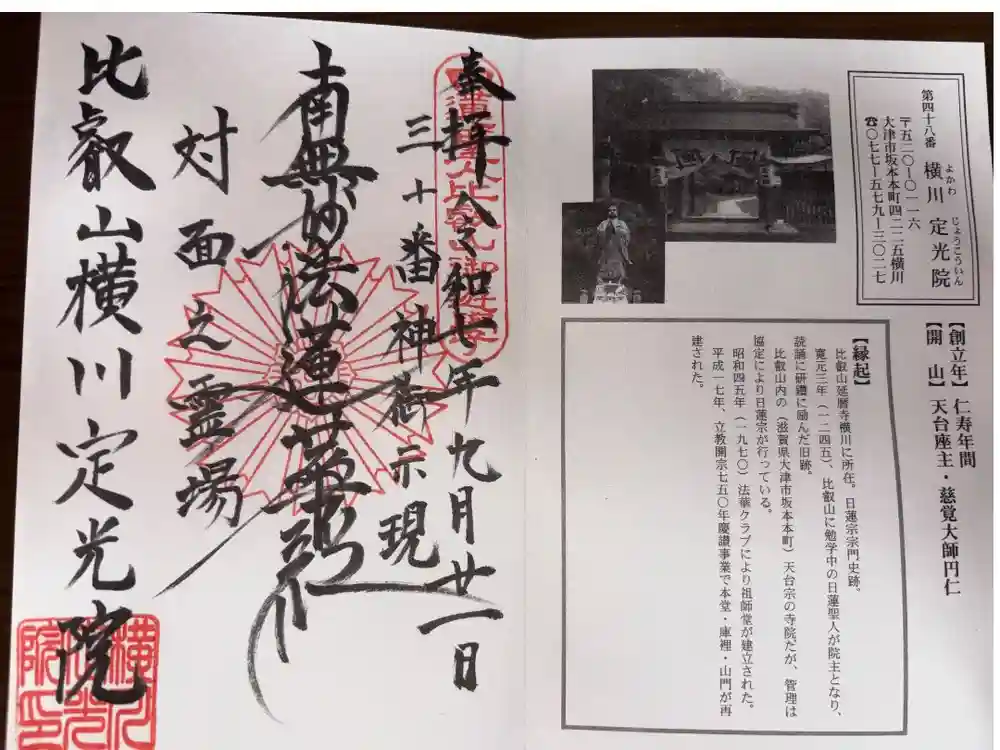 第四十八番 横川 定光院
よかわ じょうこういん
〒五二〇―〇一一六
大津市坂本本町四二二五横川
☎〇七七―五七九―三〇二七
【創立年】 仁寿年間
【開　山】 天台座主・慈覚大師円仁
【縁起】
比叡山延暦寺横川に所在。日蓮宗宗門史跡。
寛元三年(一二四五)、比叡山に勉学中の日蓮聖人が院主となり、
読誦に研鑽に励んだ旧跡。
比叡山内の(滋賀県大津市坂本本町)天台宗の寺院だが、管理は
協定により日蓮宗が行っている。
昭和四五年(一九七〇)法華クラブにより祖師堂が建立された。
平成一七年、立教開宗七五〇年慶讃事業で本堂・庫裡・山門が再
建された。
奉拝 令和七年九月廿一日
三十番神御示現
南無妙法蓮華経
対面之霊場
比叡山横川定光院
横川定光院印